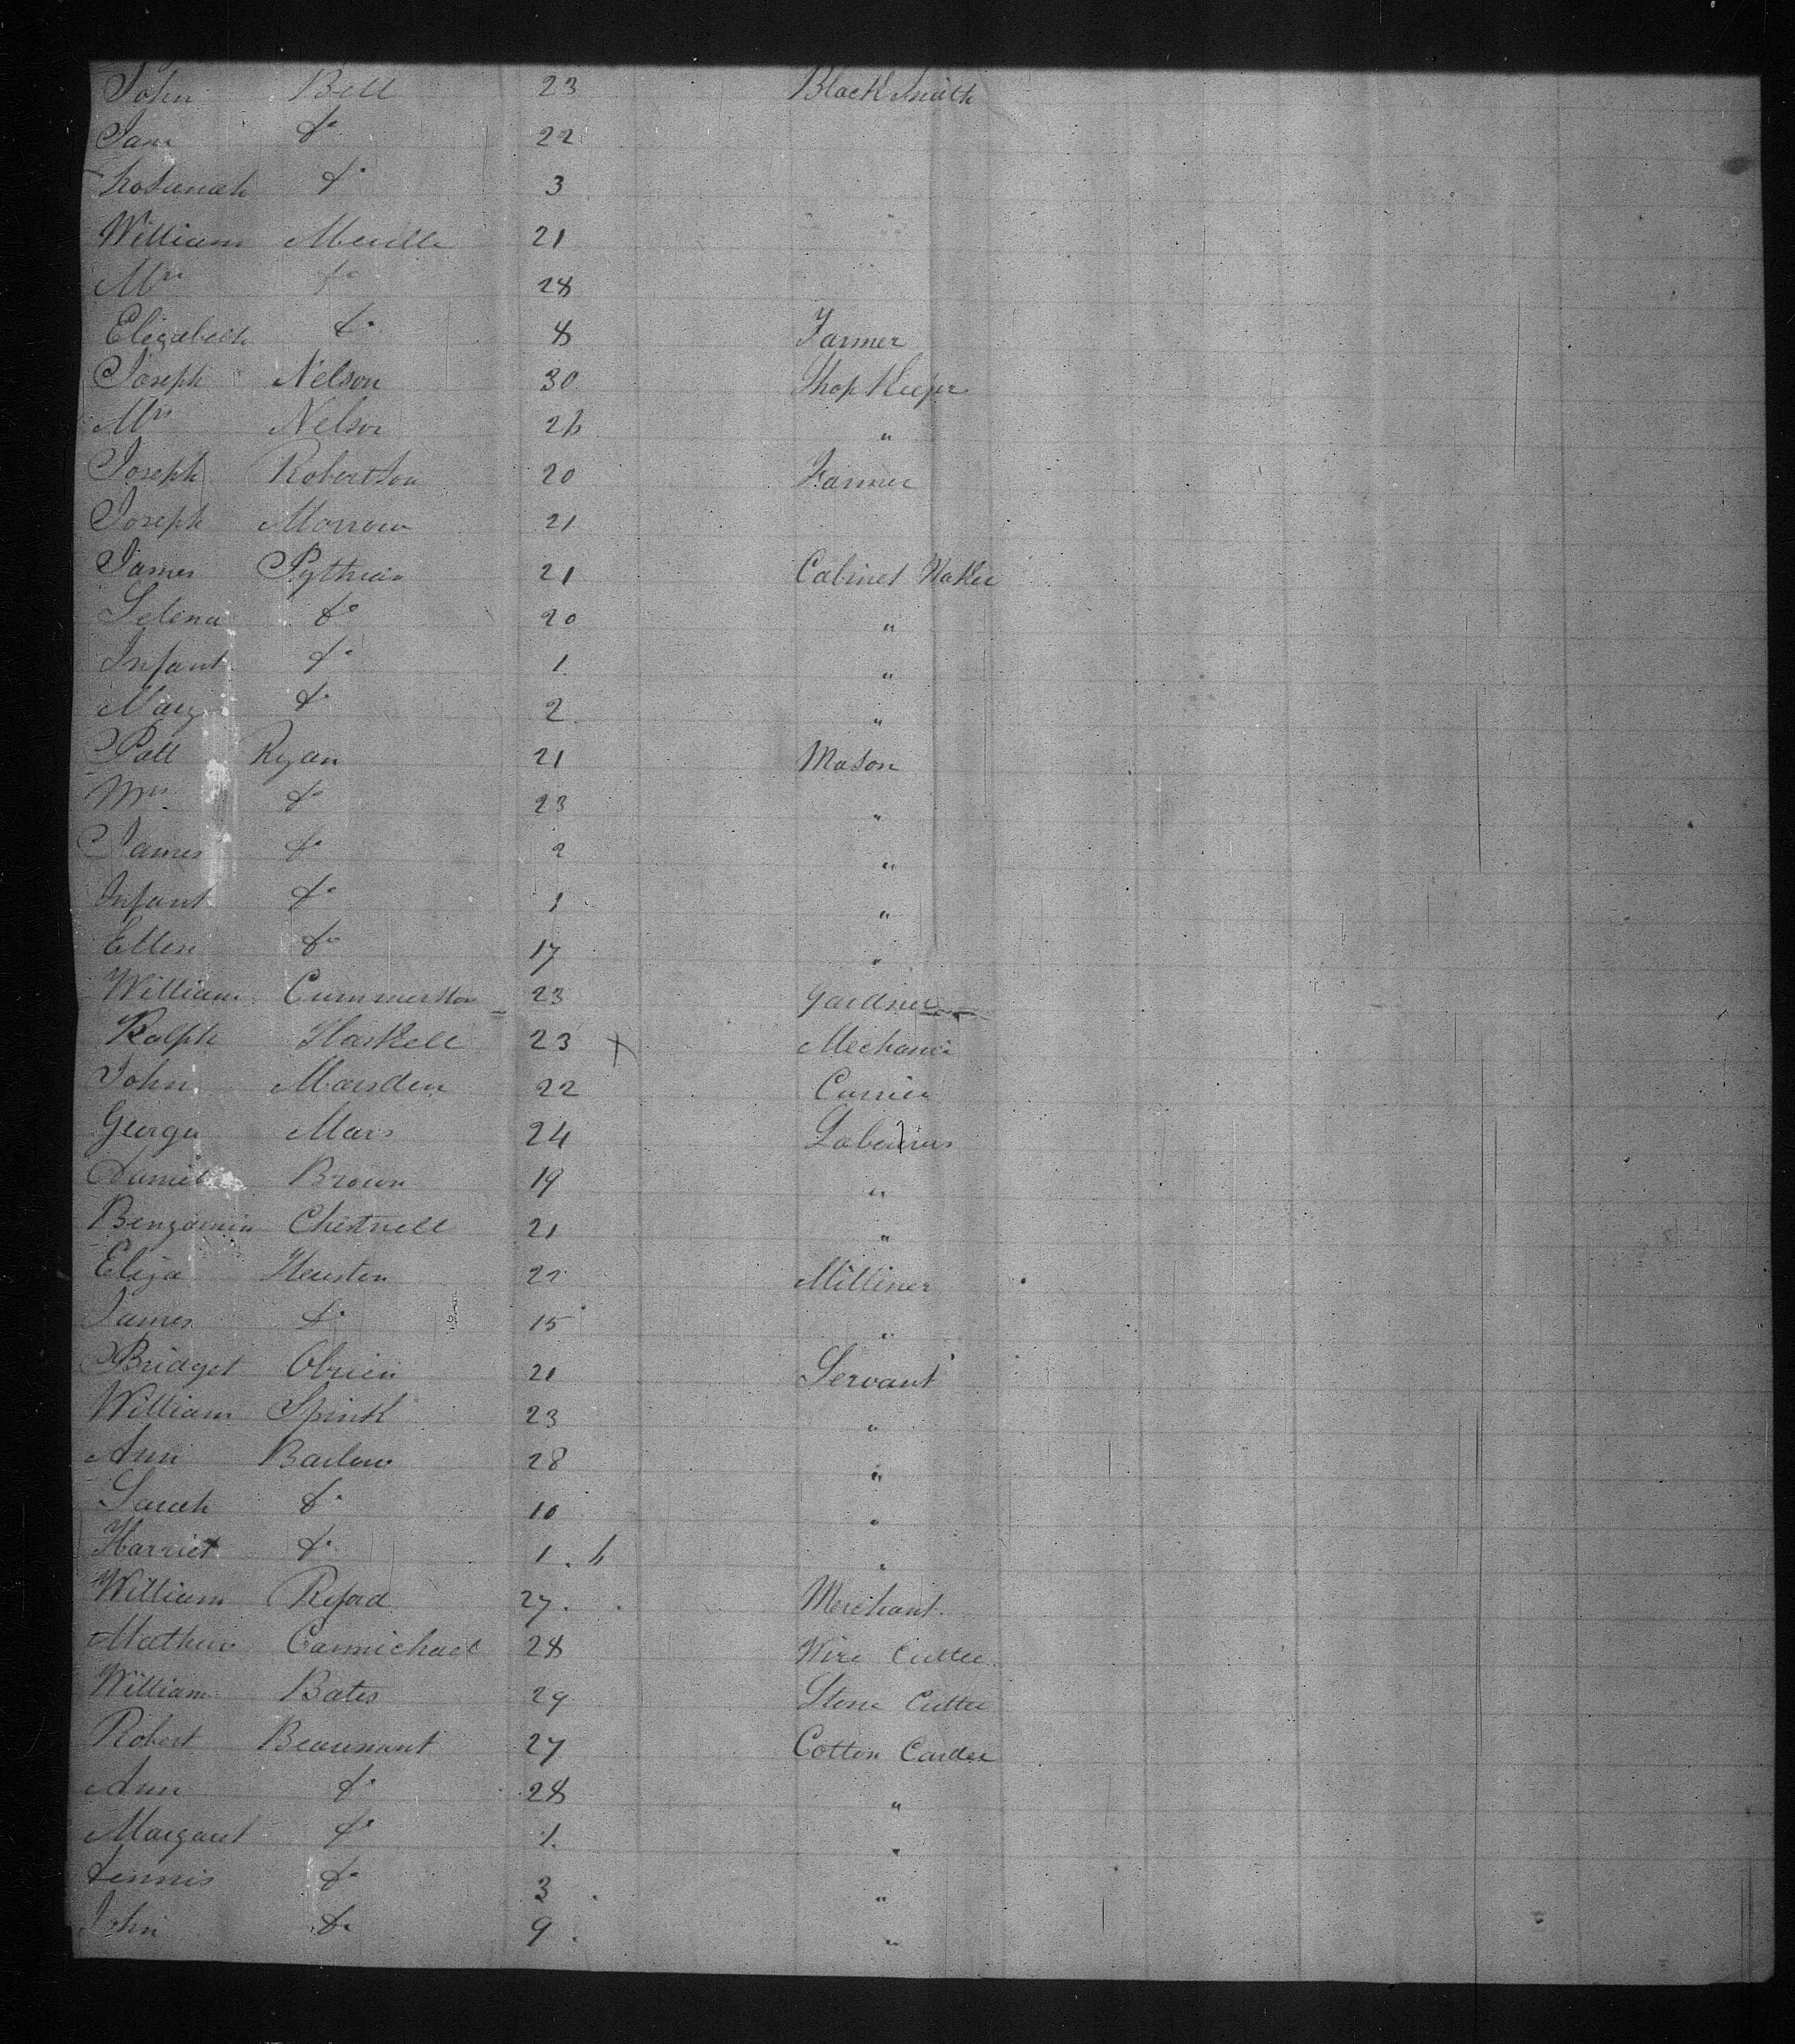 John Bell 23 Blacksmith
Jane do 22
do 3
William Melville 21
Mrs do 28
Elizabeth do 8 Farmer
Joseph Nelson 30 Shop Keeper
Mrs Nelson 26 "
Joseph Robertson 20 Farmer
Joseph Morrow 21
James Pythian 21 Cabinet Maker
Selena do 20 "
Infant do 1 "
Mary do 2 "
Patt Ryan 21 Mason
Mrs do 23 "
James do 2 "
Infant do 1 "
Ellen do 17 "
William 23 Gardner
Ralph Haskell 23 Mechanic
John Marsden 22 Currier
George Mars 24 Labourers
Daniel Brown 19 "
Benjamin Chestnell 21 "
Eliza Heuston 22 Milliner
James do 15 "
Bridget Obrien 21 Servant
William Spink 23 "
Ann Barlow 28 "
Sarah do 10 "
Harriet do 1 "
William Reford 27 Merchant
Mathew Carmichael 28 Wire Cutter
William Bates 29 Stone Cutter
Robert Beaumont 27 Cotton Carder
Ann do 28 "
Margaret do 1 "
Dennis do 3 "
John do 9 "